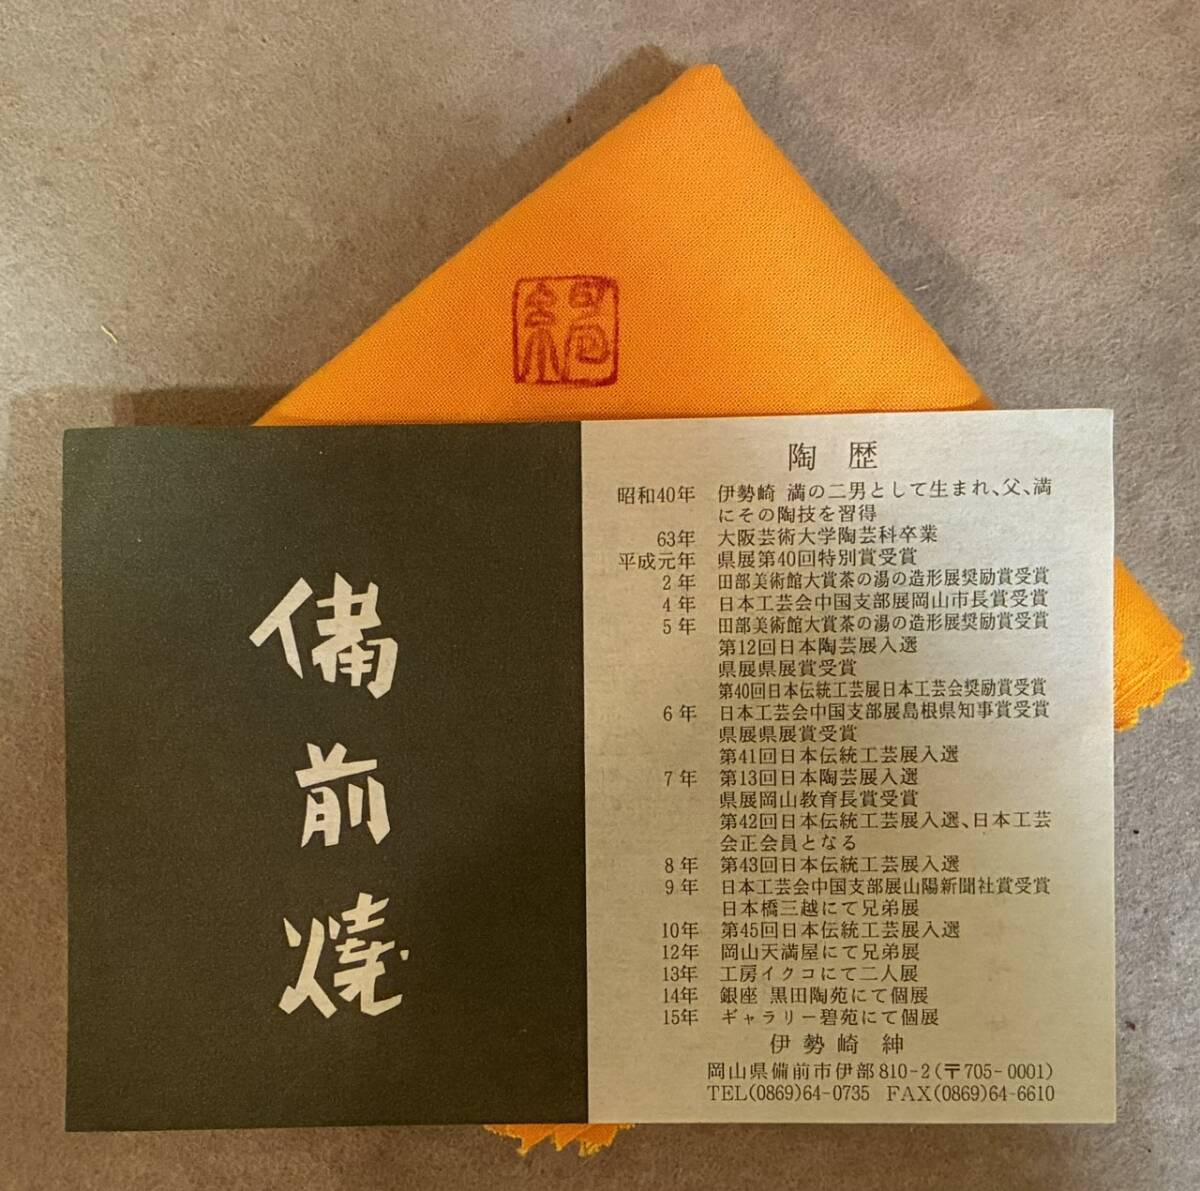 備前焼
陶歴
昭和40年 伊勢崎 満の二男として生まれ、父、満
にその陶技を習得
63年 大阪芸術大学陶芸科卒業
平成元年 県展第40回特別賞受賞
2年 田部美術館大賞茶の湯の造形展奨励賞受賞
4年 日本工芸会中国支部展岡山市長賞受賞
5年 田部美術館大賞茶の湯の造形展奨励賞受賞
第12回日本陶芸展入選
県展県展賞受賞
第40回日本伝統工芸展日本工芸会奨励賞受賞
6年 日本工芸会中国支部展島根県知事賞受賞
県展県展賞受賞
第41回日本伝統工芸展入選
7年 第13回日本陶芸展入選
県展岡山教育長賞受賞
第42回日本伝統工芸展入選、日本工芸
会正会員となる
8年 第43回日本伝統工芸展入選
9年 日本工芸会中国支部展山陽新聞社賞受賞
日本橋三越にて兄弟展
10年 第45回日本伝統工芸展入選
12年 岡山天満屋にて兄弟展
13年 工房イクコにて二人展
14年 銀座 黒田陶苑にて個展
15年 ギャラリー碧苑にて個展
伊勢崎 紳
岡山県備前市伊部810-2(〒705-0001)
TEL(0869)64-0735 FAX(0869)64-6610